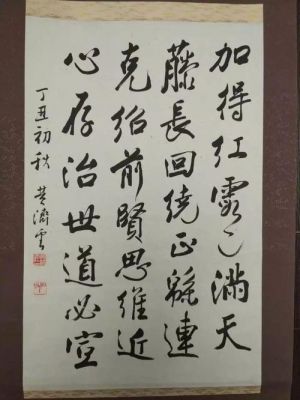 加得红霞已满天
藤長回繞正緜連
克紹前賢思維近
心存治世道必宣
丁丑初秋 黄濟雲